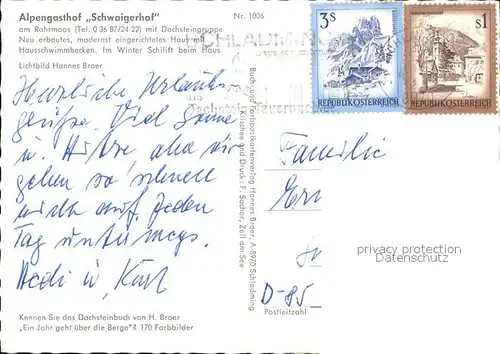 Alpengasthof „Schwaigerhof"
am Rohrmoos (Tel. 0 36 87/24 22) mit Dachsteingruppe
Neu erbautes, modernst eingerichtetes Haus mit
Hausschwimmbecken. Im Winter Schilift beim Haus
Lichtbild Hannes Broer
Nr. 1006
Herzliche Urlaubs
grüße. Viel Sonne
u. Hitze aber wir
geben so schnell
nicht auf. Jeden
Tag unterwegs.
Hedi u. Karl
Kennen Sie das Dachsteinbuch von H. Broer
„Ein Jahr geht über die Berge"? 170 Farbbilder
Buch- und Farbpostkartenverlag Hannes Broer, A-8970 Schladming
Klischee und Druck: F. Sochor, Zell am See
SCHLADMING
Dachstein-Tauerngebiet
3S
REPUBLIK ÖSTERREICH
s1
REPUBLIK ÖSTERREICH
Familie
D-85
Postleitzahl
privacy protection
Datenschutz